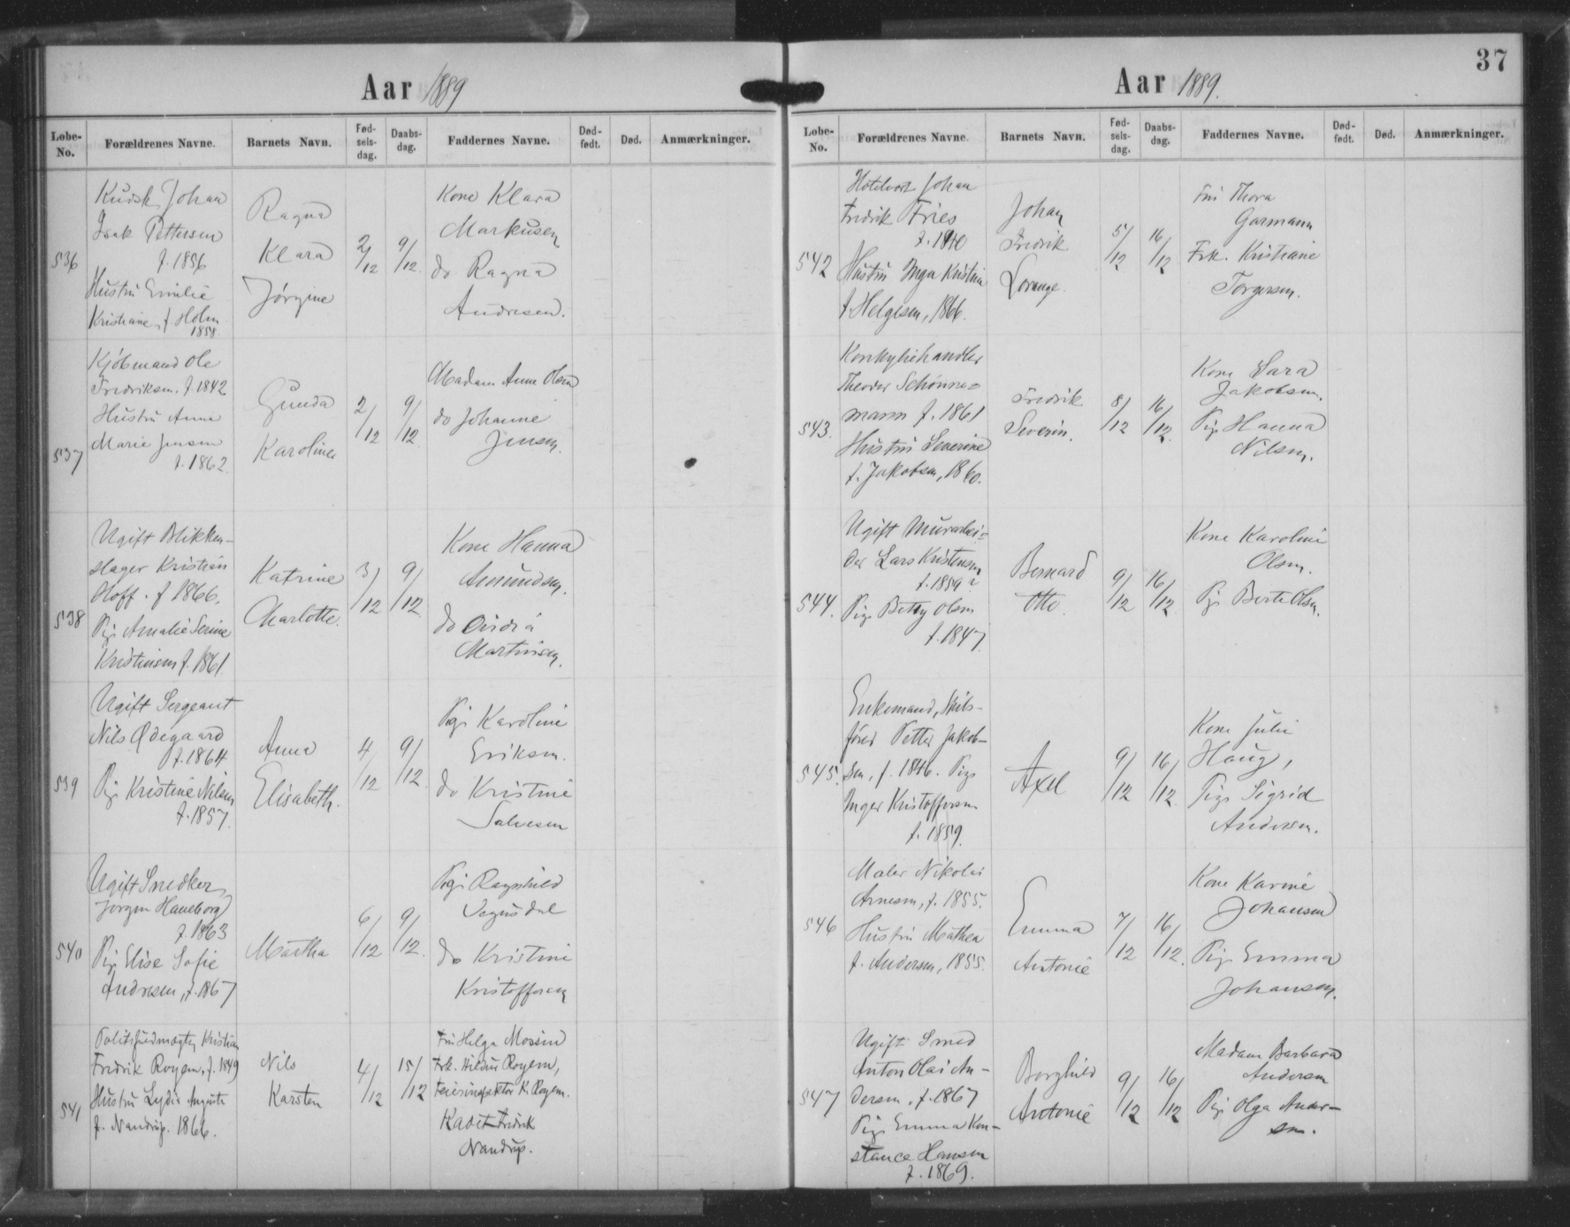 37
Aar 1889
Lobe-No.
Forældrenes Navne.
Barnets Navn.
Fød-sels-dag.
Daabs-dag.
Faddernes Navne.
Død-født.
Død.
Anmærkninger.
536
Kudsk Johan
Isak Pettersen
f. 1856
Hustru Emilie
Kristiane, f. Holm
1858
Ragna
Klara
Jørgine
2/12
9/12.
Kone Klara
Markusen
do Ragna
Andresen.
537
Kjøbmand Ole
Fredriksen. f. 1842
Hustru Anne
Marie Jensen
f. 1862.
Gunda
Karoline
2/12
9/12.
Madam Anne Olsen
do Johanne
Jensen.
538
Ugift Blikken-
slager Kristian
Hoff. f 1866.
Pige Amalie Serine
Kristensen f. 1861
Katrine
Charlotte.
3/12
9/12
Kone Hanna
Amundsen.
do
Martinsen.
539
Ugift Sergeant
Nils Ødegaard
f. 1864
Pige Kristine Nilsen
f. 1857.
Anna
Elisabeth.
4/12
9/12.
Pige Karoline
Eriksen.
do Kristine
Salvesen
540
Ugift Snedker
Jørgen Haneborg
f. 1863
Pige Elise Sofie
Andresen, f. 1867
Martha
6/12
9/12.
Pige Ragnhild
do Kristine
Kristoffersen
541
Politifuldmægtig Kristian
Fredrik Royem, f. 1849
Hustru Lydia Auguste
f. Nandrup. 1866.
Nils
Karsten
4/12
15/12
Fru Helga
Frk. Hildur Royem,
K. Royem.
Kadet Fredrik
Nandrup.
Aar 1889.
Lobe-No.
Forældrenes Navne.
Barnets Navn.
Fød-sels-dag.
Daabs-dag.
Faddernes Navne.
Død-født.
Død.
Anmærkninger.
542
Hotelvert Johan
Fredrik Fries
f. 1840
Hustru Inga Kristine
f Helgesen, 1866.
Johan
Fredrik
Lorange.
5/12
16/12
Fru Thora
Garmann
Frk. Kristiane
Torgersen.
543.
Konkyliehandler
Theodor Schönne=
mann f. 1861
Hustru Severine
f. Jakobsen, 1860.
Fredrik
Severin.
8/12
16/12.
Kone Sara
Jakobsen.
Pige Hanna
Nilsen.
544.
Ugift Murarbei=
der Lars Kristensen
f. 1859?
Pige Betsy Olsen
f. 1847
Bernard
Otto.
9/12
16/12.
Kone Karoline
Olsen.
Pige Berte Olsen.
545.
Enkemand, Skibs-
fører Petter Jakob-
sen, f. 1846. Pige
Inger Kristoffersen
f. 1859.
Axel
9/12
16/12.
Kone Julie
Haug,
Pige Sigrid
Andersen.
546
Maler Nikolai
Arnesen, f. 1855.
Hustru Mathea
f. Andersen, 1855.
Emma
Antonie
7/12
16/12.
Kone Karine
Johansen
Pige Emma
Johansen.
547
Ugift Smed
Anton Olai An-
dersen, f. 1867
Pige Emma Kon-
stance Hansen
f. 1869.
Borghild
Antonie
9/12
16/12
Madam Barbara
Andersen
Pige Olga Ander-
sen.